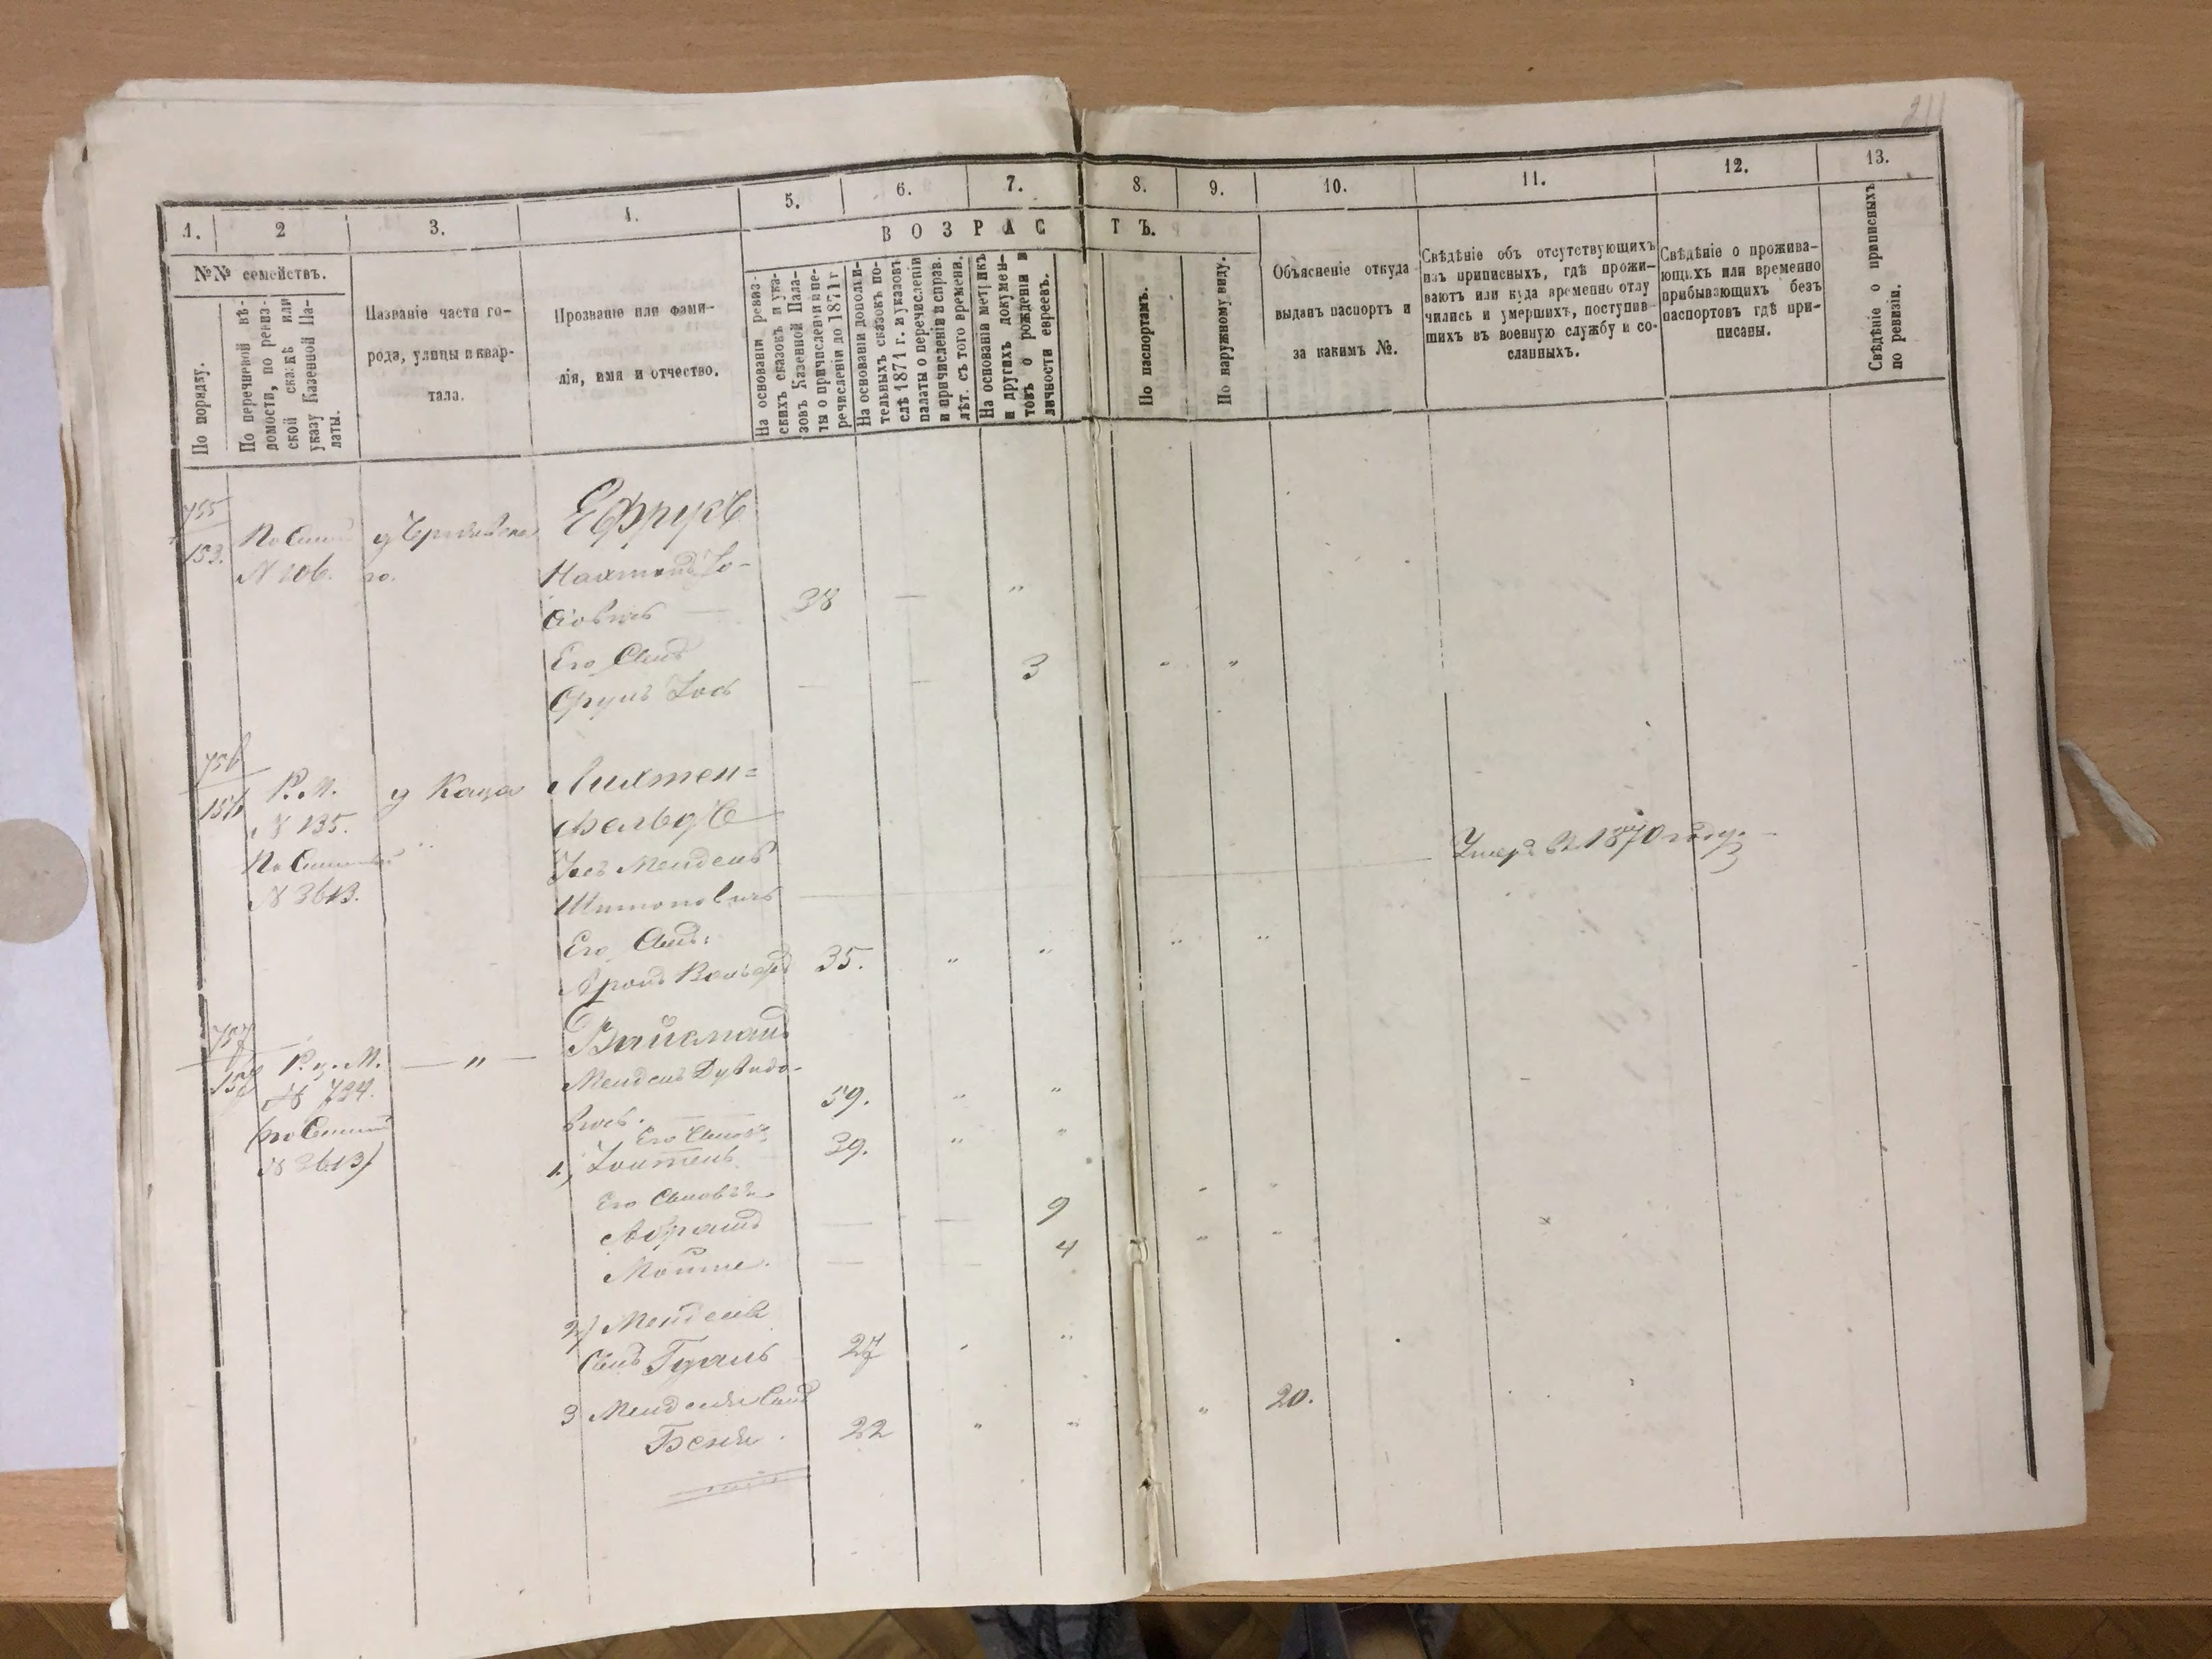 211
1.
2
3.
4.
5.
6.
7.
8.
9.
10.
11.
12.
13.
№№ семействъ.
В О З Р А С Т Ъ.
По порядку.
По перечневой вѣ-
домости, по ревиз-
ской сказкѣ или
указу Казенной Па-
латы.
Названіе части го-
рода, улицы и квар-
тала.
Прозваніе или фами-
лія, имя и отчество.
На основаніи ревиз-
скихъ сказокъ и ука-
зовъ Казенной Пала-
ты о причисленіи и пе-
речисленіи до 1871 г
На основаніи дополни-
тельныхъ сказокъ по-
слѣ 1871 г. и указовъ
палаты о перечисленіи
и причисленіи в справ.
лѣт. съ того времени.
На основаніи метрикъ
и другихъ докумен-
товъ о рожденіи и
личности евреевъ.
По паспортамъ.
По наружному виду.
Объясненіе откуда
выданъ паспортъ и
за какимъ №.
Свѣдѣніе объ отсутствующихъ
изъ приписныхъ, гдѣ прожи-
ваютъ или куда временно отлу
чились и умершихъ, поступив-
шихъ въ военную службу и со-
сланныхъ.
Свѣдѣніе о прожива-
ющихъ или временно
прибывающихъ безъ
паспортовъ гдѣ при-
писаны.
Свѣдѣніе о приписныхъ
по ревизіи.
755
153.
N 106.
го.
Ефрусъ
38
Его Сынъ
Срулъ Іось
3
756
156
Р. М.
N 135.
N 3613.
у Каца
Лихтен=
фельдъ
Іось Мендель
Шимоновичъ
Умеръ въ 1870 году.
Его Сынъ:
Аронъ Вольфъ
35.
757
157
Р. д. М.
N 724.
N 3613)
— " —
Вайсманъ
Мендель Дувидо-
вичъ.
59.
Его Сыновья
1, 
39.
Его Сыновья
Абрамъ
9
Мойше.
4
2) Менделя
Сынъ
27
3 Менделя Сынъ
Беня.
22
20.